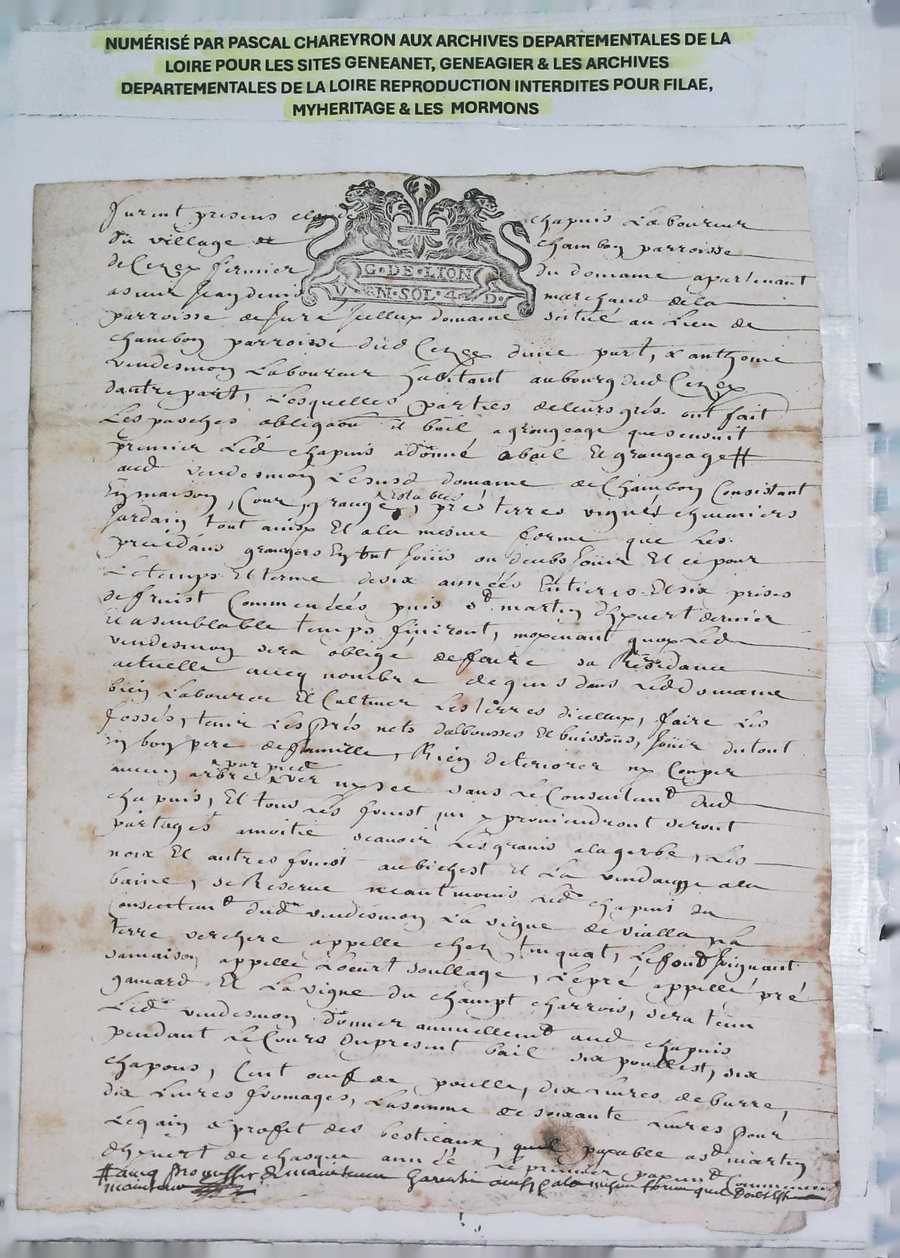 NUMÉRISÉ PAR PASCAL CHAREYRON AUX ARCHIVES DEPARTEMENTALES DE LA
LOIRE POUR LES SITES GENEANET, GENEAGIER & LES ARCHIVES
DEPARTEMENTALES DE LA LOIRE REPRODUCTION INTERDITES POUR FILAE,
MYHERITAGE & LES MORMONS
G·DE·LION
M·SOL·4·D·
furent presens chapuis Laboureur
du village de chambon parroisse
de Cezex fermier du domaine apartenant
a sieur marchand de la
parroisse de Jure Jcelluy domaine situé au Lieu de
chambon parroisse dud Cezex dune part, & anthoine
vendesmon Laboureur habitant au bourg dud Cezex
dautre part, Lesquelles parties de leurs grés ont fait
Les pasches bail a grangeage que sensuit
premier Led chapuis a donné a bail Et grangeage #
aud vendesmon Lesusd domaine de Chambon Consistant
En maison, Cour, grange, Estable, prés terres vignes chemniers
Jardain tout ainsy Et a la mesme forme que Les
grangers En ont Joüis ou deubs Joüir Et ce pour
Le temps Et terme de six années Entieres Et six prises
de fruist Commencées puis st martin dhyvert dernier
Et a semblable temps finiront, moyenant quoy Led
vendesmon sera obligé de faire sa Residance
actuelle avecq nombre de gens dans Led domaine
bien Labourer Et Cultiver Les terres dicelluy, faire Les
fossés, tenir Les Prés nets Et buissons, Joüir du tout
En bon pere de famille, Rien deteriorer ny Couper
aucun arbre par pied ver ny sec sans Le Consentemt dud
chapuis, Et tous Les fruist qui y proviendront seront
partagés a moitié scavoir Les grains a la gerbe, Les
noix Et autres fruist au bichest Et La vendange a la
baine, se Reserve neantmoins Led chapuis du
Consentemt dud vendesmon La vigne de vialla La
terre verchere appellé chez Le fond Joignant
sa maison appellé soullage, Le pré appellé pré
gamard Et La vigne du champt charrois, sera tenu
Led vendesmon donner annuellemt aud chapuis
pendant Le Cours du present bail six poullest, six
chapons, Cent œufs de poulle, dix Livres de burre,
dix Livres fromages, La somme de soixante Livres pour
Le gain & profit des bestieaux, payable a st martin
dhyvert de chasque année Le premier
# avec promesse de maintenir